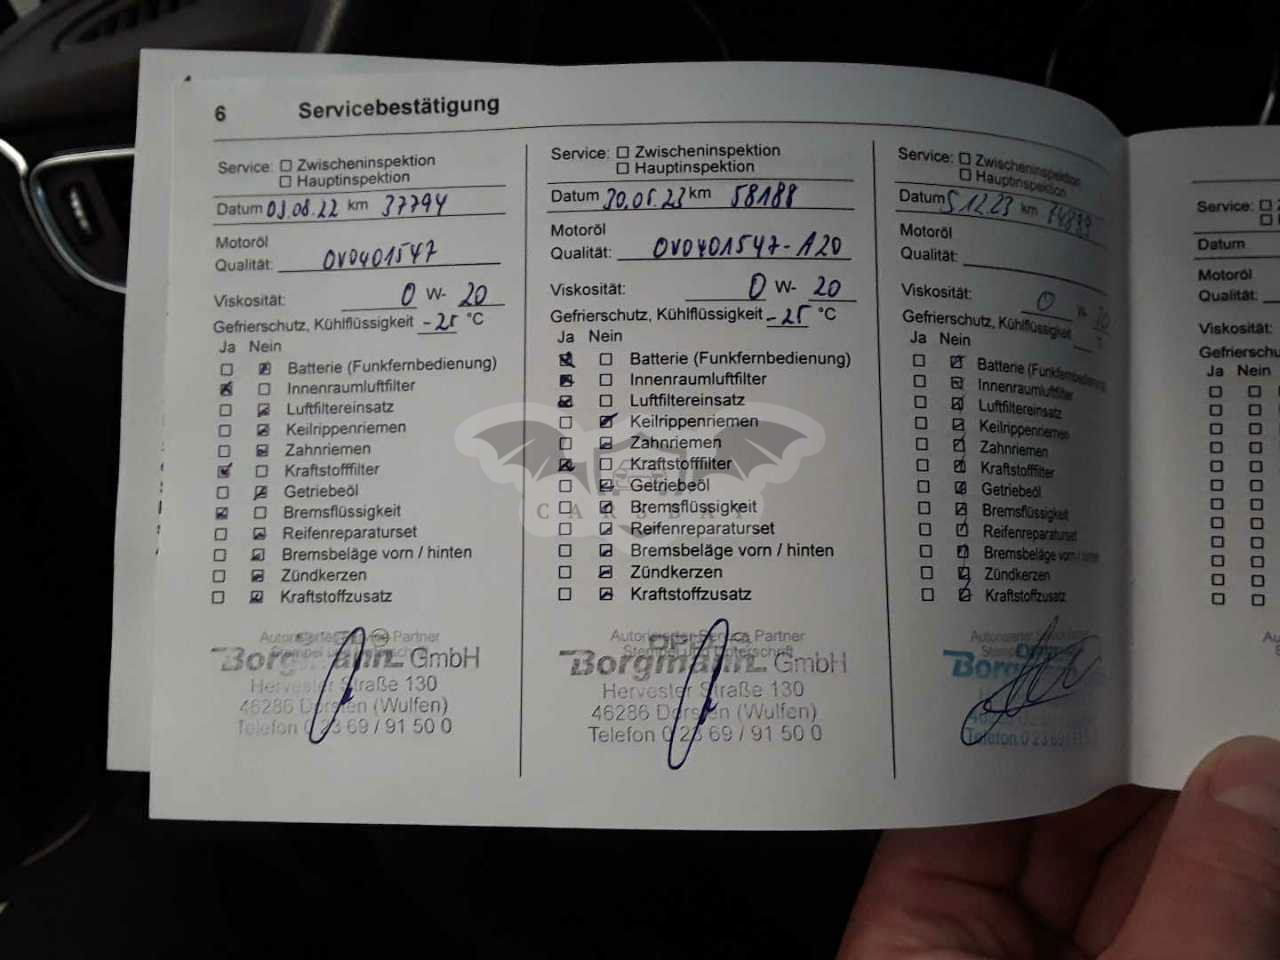 6 Servicebestätigung
Service: Zwischeninspektion
Hauptinspektion
Datum 03.08.22 km 37794
Motoröl
Qualität: OV0401547
Viskosität: 0 W- 20
Gefrierschutz, Kühlflüssigkeit -25 °C
Ja Nein
Batterie (Funkfernbedienung)
Innenraumluftfilter
Luftfiltereinsatz
Keilrippenriemen
Zahnriemen
Kraftstofffilter
Getriebeöl
Bremsflüssigkeit
Reifenreparaturset
Bremsbeläge vorn / hinten
Zündkerzen
Kraftstoffzusatz
Autorisierter Service Partner
Stempel und
Borgmann GmbH
Hervester Straße 130
46286 Dorsten (Wulfen)
Telefon 0 23 69 / 91 50 0
Service: Zwischeninspektion
Hauptinspektion
Datum 30.05.23 km 58188
Motoröl
Qualität: OV0401547-A20
Viskosität: 0 W- 20
Gefrierschutz, Kühlflüssigkeit -25 °C
Ja Nein
Batterie (Funkfernbedienung)
Innenraumluftfilter
Luftfiltereinsatz
Keilrippenriemen
Zahnriemen
Kraftstofffilter
Getriebeöl
Bremsflüssigkeit
Reifenreparaturset
Bremsbeläge vorn / hinten
Zündkerzen
Kraftstoffzusatz
CARSBAT
Autorisierter Service Partner
Stempel und Unterschrift
Borgmann GmbH
Hervester Straße 130
46286 Dorsten (Wulfen)
Telefon 0 23 69 / 91 50 0
Service: Zwischeninspektion
Hauptinspektion
Datum 5.12.23 km
Motoröl
Qualität:
Viskosität: 0 W- 20
Gefrierschutz, Kühlflüssigkeit
Ja Nein
Batterie (Funkfernbedienung)
Innenraumluftfilter
Luftfiltereinsatz
Keilrippenriemen
Zahnriemen
Kraftstofffilter
Getriebeöl
Bremsflüssigkeit
Reifenreparaturset
Bremsbeläge vorn / hinten
Zündkerzen
Kraftstoffzusatz
Autorisierter
Borg
Telefon 0 23 69
Service:
Datum
Motoröl
Qualität:
Viskosität:
Gefrierschu
Ja Nein